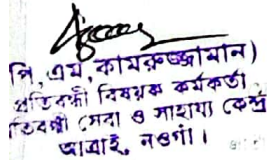 পি, এম, কামরুজ্জামান)
প্রতিবন্ধী বিষয়ক কর্মকর্তা
তিবন্ধী সেবা ও সাহায্য কেন্দ্র
আত্রাই, নওগাঁ।